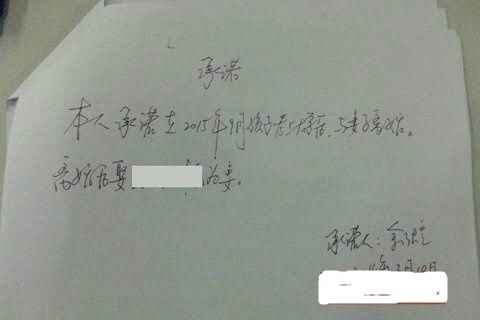 承诺
本人承诺在2015年9月孩子考上大学后,与妻子离婚。
离婚后娶 为妻。
承诺人:
月10日